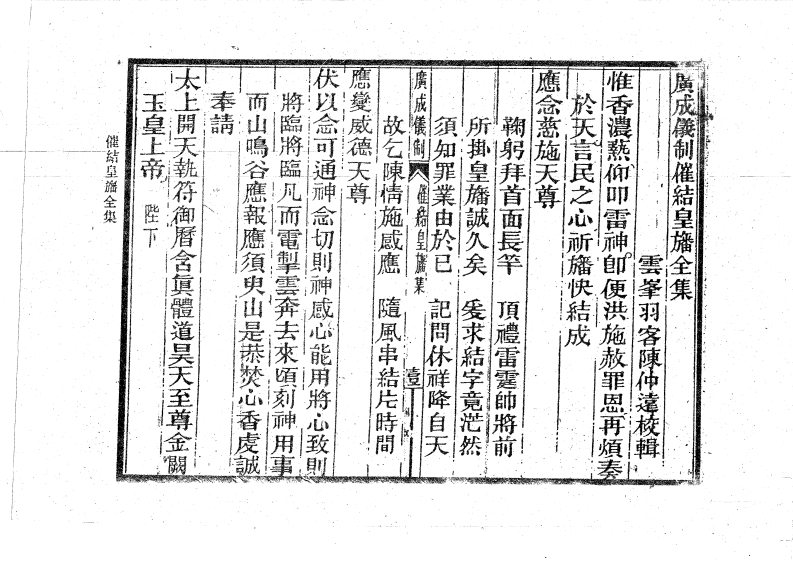 廣成儀制催結皇旛全集
雲峯羽客陳仲遠校輯
惟香濃爇仰叩雷神卽便洪施赦罪恩再煩奏
於天言民之心祈旛快結成
應念慈施天尊
鞠躬拜首面長竿 頂禮雷霆帥將前
所掛皇旛誠久矣 爰求結字竟茫然
須知罪業由於已 記問休祥降自天
故乞陳情施感應 隨風串結片時間
廣成儀制 催結皇旛集 壹
應變威德天尊
伏以念可通神念切則神感心能用將心致則
將臨將臨凡而電掣雲奔去來頃刻神用事
而山鳴谷應報應須臾山是恭焚心香虔誠
奉請
太上開天執符御曆含眞體道昊天至尊金闕
玉皇上帝 陛下
催結皇旛全集